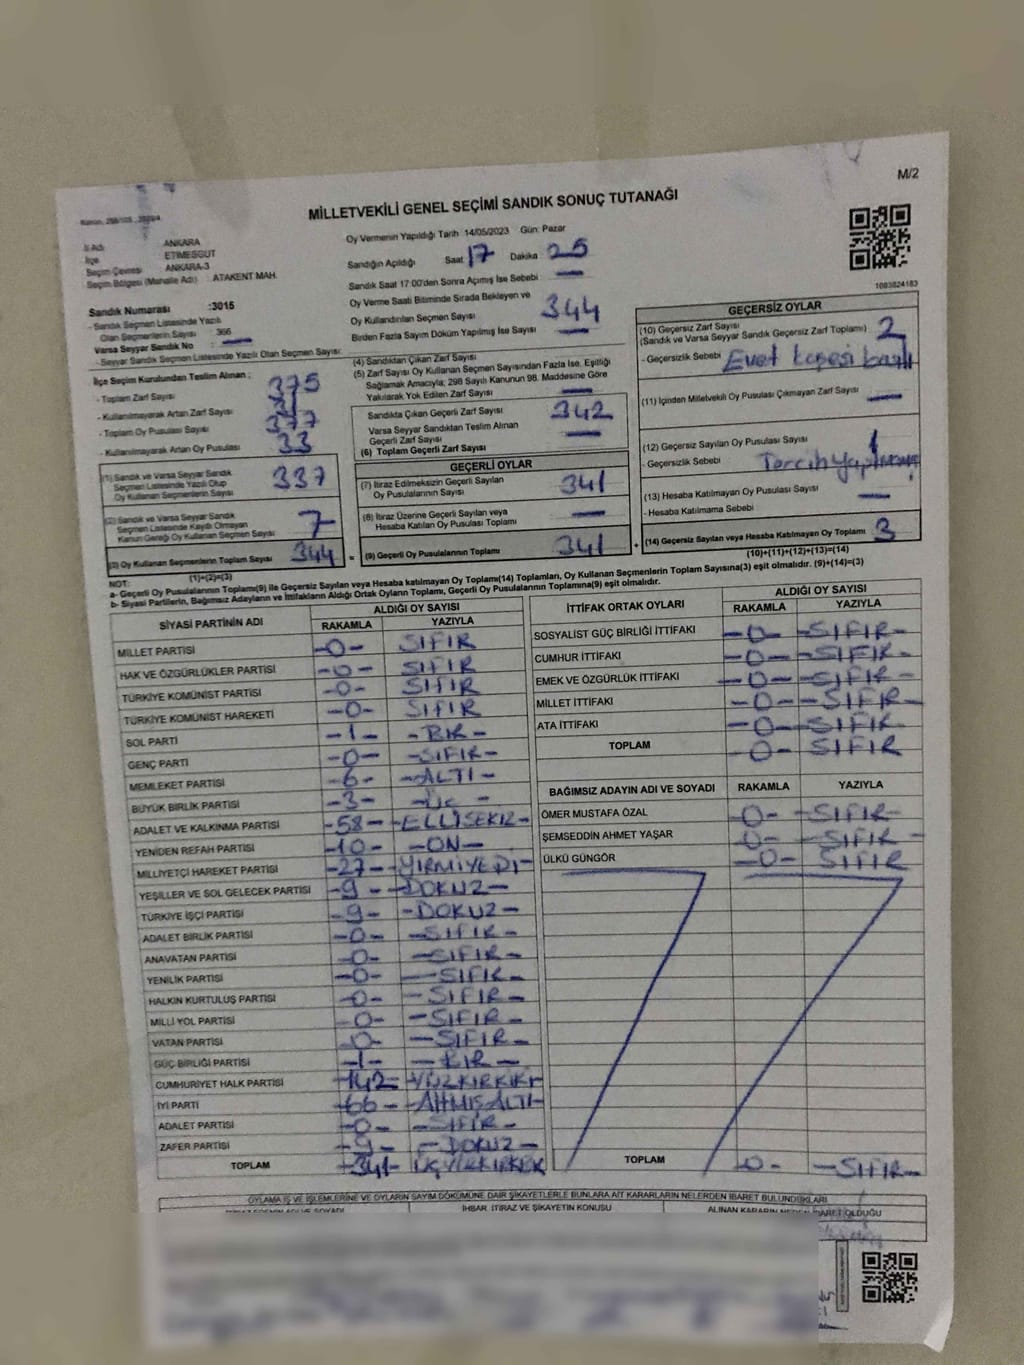 M/2
MİLLETVEKİLİ GENEL SEÇİMİ SANDIK SONUÇ TUTANAĞI
1083824183
İl Adı ANKARA
İlçe ETİMESGUT
Seçim Çevresi ANKARA-3
Seçim Bölgesi (Mahalle Adı) : ATAKENT MAH.
Sandık Numarası :3015
- Sandık Seçmen Listesinde Yazılı
Olan Seçmenlerin Sayısı: 366
Varsa Seyyar Sandık No : —
- Seyyar Sandık Seçmen Listesinde Yazılı Olan Seçmen Sayısı:
Oy Vermenin Yapıldığı Tarih 14/05/2023 Gün: Pazar
Sandığın Açıldığı Saat 17 Dakika : 25
Sandık Saat 17:00'den Sonra Açılmış İse Sebebi —
Oy Verme Saati Bitiminde Sırada Bekleyen ve
Oy Kullandırılan Seçmen Sayısı 344
Birden Fazla Sayım Döküm Yapılmış İse Sayısı —
İlçe Seçim Kurulundan Teslim Alınan :
- Toplam Zarf Sayısı 375
- Kullanılmayarak Artan Zarf Sayısı
- Toplam Oy Pusulası Sayısı 377
- Kullanılmayarak Artan Oy Pusulası 33
(1) Sandık ve Varsa Seyyar Sandık
Seçmen Listesinde Yazılı Olup
Oy Kullanan Seçmenlerin Sayısı 337
(2) Sandık ve Varsa Seyyar Sandık
Seçmen Listesinde Kayıtlı Olmayan
Kanun Gereği Oy Kullanan Seçmen Sayısı 7
(3) Oy Kullanan Seçmenlerin Toplam Sayısı 344
(1)+(2)=(3)
(4) Sandıktan Çıkan Zarf Sayısı
(5) Zarf Sayısı Oy Kullanan Seçmen Sayısından Fazla İse, Eşitliği
Sağlamak Amacıyla; 298 Sayılı Kanunun 98. Maddesine Göre
Yakılarak Yok Edilen Zarf Sayısı —
Sandıkta Çıkan Geçerli Zarf Sayısı 342
Varsa Seyyar Sandıktan Teslim Alınan
Geçerli Zarf Sayısı —
(6) Toplam Geçerli Zarf Sayısı
GEÇERLİ OYLAR
(7) İtiraz Edilmeksizin Geçerli Sayılan
Oy Pusulalarının Sayısı 341
(8) İtiraz Üzerine Geçerli Sayılan veya
Hesaba Katılan Oy Pusulası Toplamı —
= (9) Geçerli Oy Pusulalarının Toplamı 341
GEÇERSİZ OYLAR
(10) Geçersiz Zarf Sayısı
(Sandık ve Varsa Seyyar Sandık Geçersiz Zarf Toplamı) 2
- Geçersizlik Sebebi Evet kaşesi basılı
(11) İçinden Milletvekili Oy Pusulası Çıkmayan Zarf Sayısı —
(12) Geçersiz Sayılan Oy Pusulası Sayısı 1
- Geçersizlik Sebebi Tercih
(13) Hesaba Katılmayan Oy Pusulası Sayısı —
- Hesaba Katılmama Sebebi
+ (14) Geçersiz Sayılan veya Hesaba Katılmayan Oy Toplamı 3
(10)+(11)+(12)+(13)=(14)
NOT:
a- Geçerli Oy Pusulasının Toplamı(9) ile Geçersiz Sayılan veya Hesaba katılmayan Oy Toplamı(14) Toplamları, Oy Kullanan Seçmenlerin Toplam Sayısına(3) eşit olmalıdır. (9)+(14)=(3)
b- Siyasi Partilerin, Bağımsız Adayların ve İttifakların Aldığı Ortak Oyların Toplamı, Geçerli Oy Pusulalarının Toplamına(9) eşit olmalıdır.
SİYASİ PARTİNİN ADI ALDIĞI OY SAYISI
RAKAMLA YAZIYLA
MİLLET PARTİSİ -0- SIFIR
HAK VE ÖZGÜRLÜKLER PARTİSİ -0- SIFIR
TÜRKİYE KOMÜNİST PARTİSİ -0- SIFIR
TÜRKİYE KOMÜNİST HAREKETİ -0- SIFIR
SOL PARTİ -1- -BİR-
GENÇ PARTİ -0- -SIFIR-
MEMLEKET PARTİSİ -6- -ALTI-
BÜYÜK BİRLİK PARTİSİ -3- -ÜÇ-
ADALET VE KALKINMA PARTİSİ -58- -ELLİSEKİZ-
YENİDEN REFAH PARTİSİ -10- -ON-
MİLLİYETÇİ HAREKET PARTİSİ -27- -YİRMİYEDİ-
YEŞİLLER VE SOL GELECEK PARTİSİ -9- -DOKUZ-
TÜRKİYE İŞÇİ PARTİSİ -9- -DOKUZ-
ADALET BİRLİK PARTİSİ -0- -SIFIR-
ANAVATAN PARTİSİ -0- -SIFIR-
YENİLİK PARTİSİ -0- -SIFIR-
HALKIN KURTULUŞ PARTİSİ -0- -SIFIR-
MİLLİ YOL PARTİSİ -0- -SIFIR-
VATAN PARTİSİ -0- -SIFIR-
GÜÇ BİRLİĞİ PARTİSİ -1- -BİR-
CUMHURİYET HALK PARTİSİ -142- -YÜZKIRKİKİ
İYİ PARTİ -66- -ALTMIŞALTI-
ADALET PARTİSİ -0- -SIFIR-
ZAFER PARTİSİ -9- -DOKUZ-
TOPLAM -341- ÜÇYÜZKIRKBİR
İTTİFAK ORTAK OYLARI ALDIĞI OY SAYISI
RAKAMLA YAZIYLA
SOSYALİST GÜÇ BİRLİĞİ İTTİFAKI -0- -SIFIR-
CUMHUR İTTİFAKI -0- -SIFIR-
EMEK VE ÖZGÜRLÜK İTTİFAKI -0- -SIFIR-
MİLLET İTTİFAKI -0- -SIFIR-
ATA İTTİFAKI -0- -SIFIR-
TOPLAM -0- SIFIR
BAĞIMSIZ ADAYIN ADI VE SOYADI RAKAMLA YAZIYLA
ÖMER MUSTAFA ÖZAL -0- -SIFIR-
ŞEMSEDDİN AHMET YAŞAR -0- -SIFIR-
ÜLKÜ GÜNGÖR -0- SIFIR
TOPLAM -0- -SIFIR-
OYLAMA İŞ VE İŞLEMLERİNE VE OYLARIN SAYIM DÖKÜMÜNE DAİR ŞİKAYETLERLE BUNLARA AİT KARARLARIN NELERDEN İBARET BULUNDUKLARI
İHBAR, İTİRAZ VE ŞİKAYETİN KONUSU ALINAN KARARIN NEDEN İBARET OLDUĞU